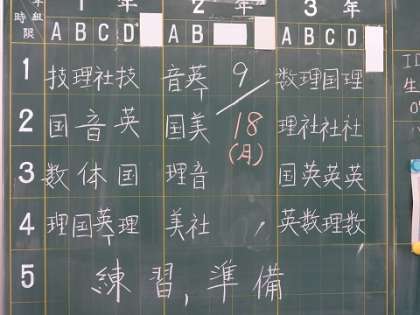 1年 2年 3年
時限 組 A B C D A B A B C D
1 技理社技 音英T 9/ 数理国理
2 国音英 国美 18 理社社社
3 数体国 理音 (月) 国英英英
4 理国英T理 美社 英数理数
5 練習,準備
生